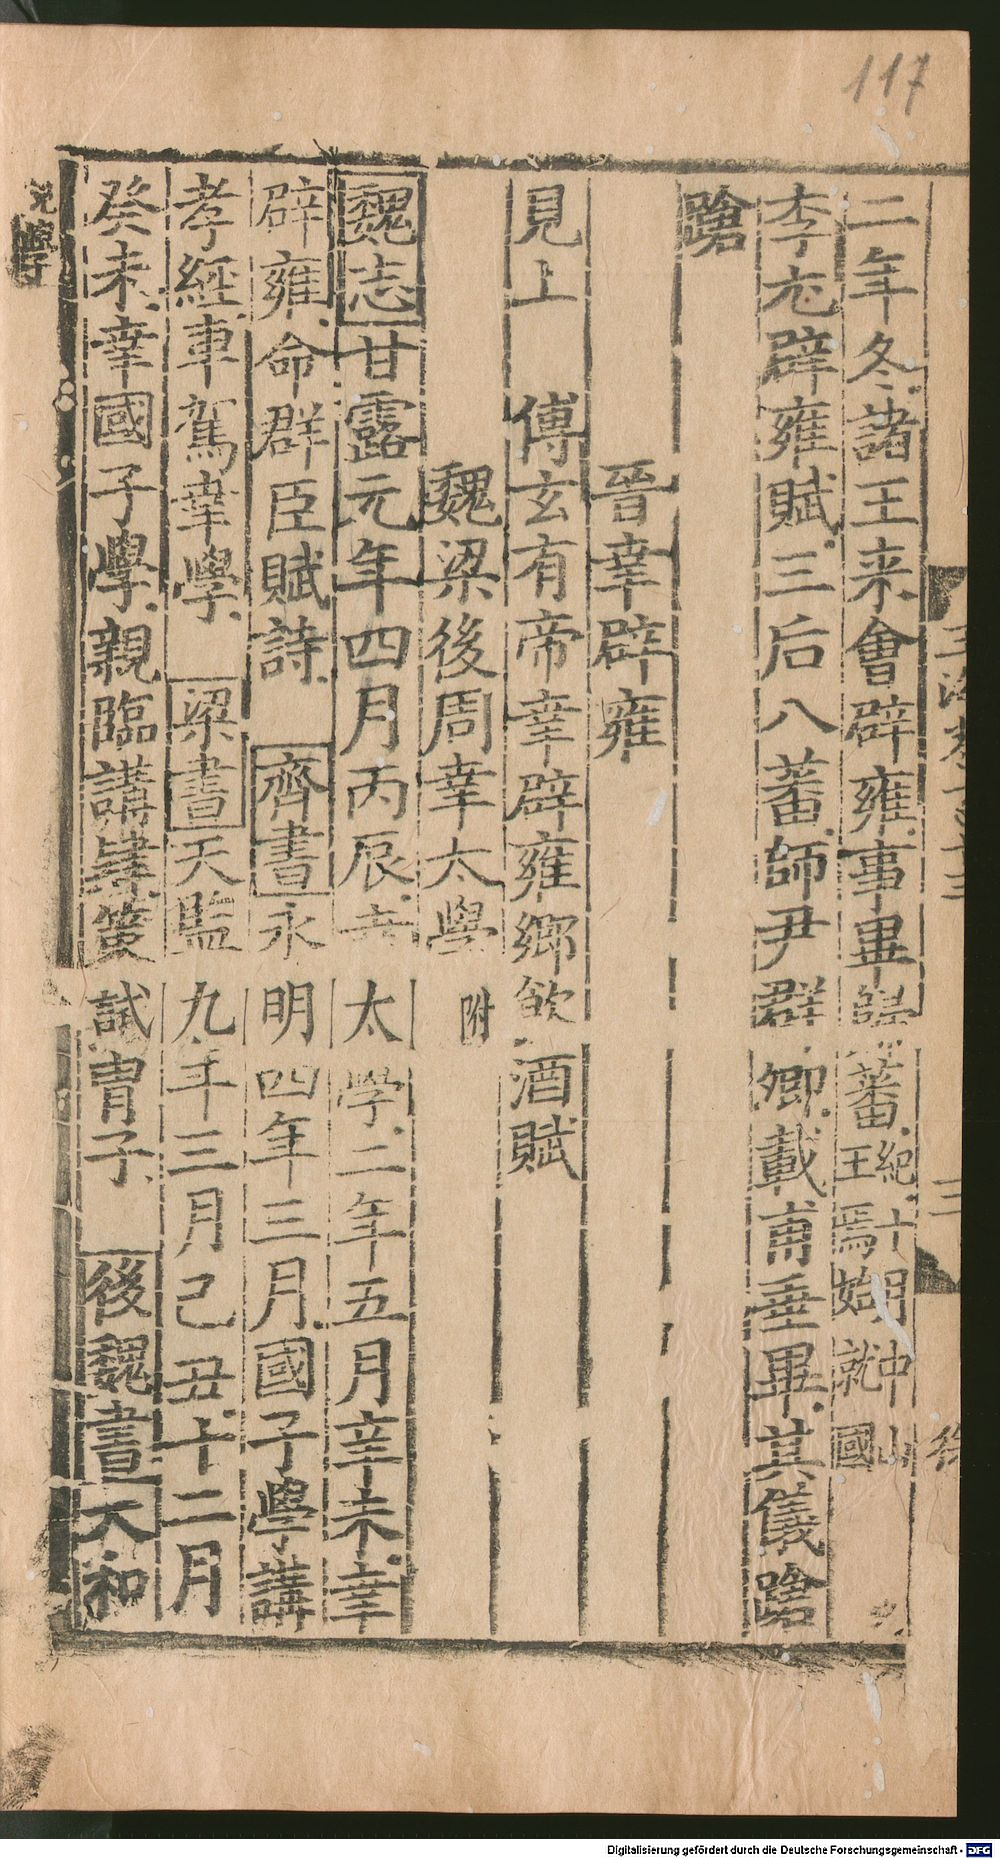 117
二年冬諸王來會辟雍事畢歸蕃紀十胡中山王焉始就國
李尤辟雍賦三后八蕃師尹群卿戴甫垂畢其儀蹌
蹌
晉幸辟雍
見上 傅玄有帝幸辟雍鄉飲酒賦
魏梁後周幸太學附
魏志甘露元年四月丙辰幸太學二年五月辛未幸
辟雍命群臣賦詩 齊書永明四年三月國子學講
孝經車駕幸學 梁書天監九年三月己丑十二月
癸未幸國子學親臨講肆策試胄子 後魏書太和
Digitalisierung gefördert durch die Deutsche Forschungsgemeinschaft - DFG